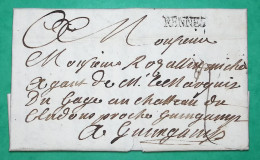 RENNES
Monsieur
Monsieur
agent de M. le Marquis
du Gage au chatteau du
proche Guingamp
a Guingamp